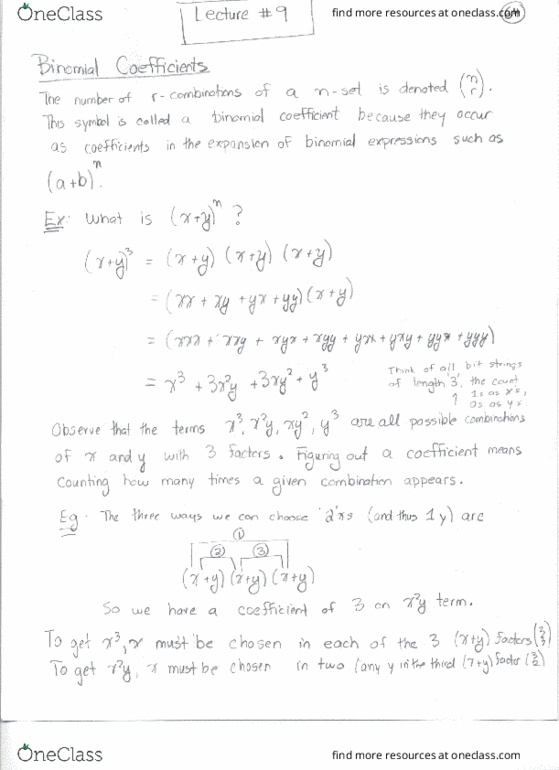 OneClass
Lecture #9
find more resources at oneclass.com
Binomial Coefficients
The number of r-combinations of a n-set is denoted (n r).
This symbol is called a binomial coefficient because they occur
as coefficients in the expansion of binomial expressions such as
(a+b)^n.
Ex: What is (x+y)^n ?
(x+y)^3 = (x+y) (x+y) (x+y)
= (xx + xy + yx + yy)(x+y)
= (xxx + xxy + xyx + xyy + yxx + yxy + yyx + yyy)
= x^3 + 3x^2y + 3xy^2 + y^3
Think of all bit strings
of length '3', the count
1s as x's,
0s as y's.
Observe that the terms x^3, x^2y, xy^2, y^3 are all possible combinations
of x and y with 3 factors. Figuring out a coefficient means
counting how many times a given combination appears.
Eg. The three ways we can choose '2' x's (and thus 1 y) are
①
② ③
(x+y) (x+y) (x+y)
So we have a coefficient of 3 on x^2y term.
To get x^3, x must be chosen in each of the 3 (x+y) factors (3 3)
To get x^2y, x must be chosen in two (any y in the third (x+y) factor (3 2)
OneClass
find more resources at oneclass.com